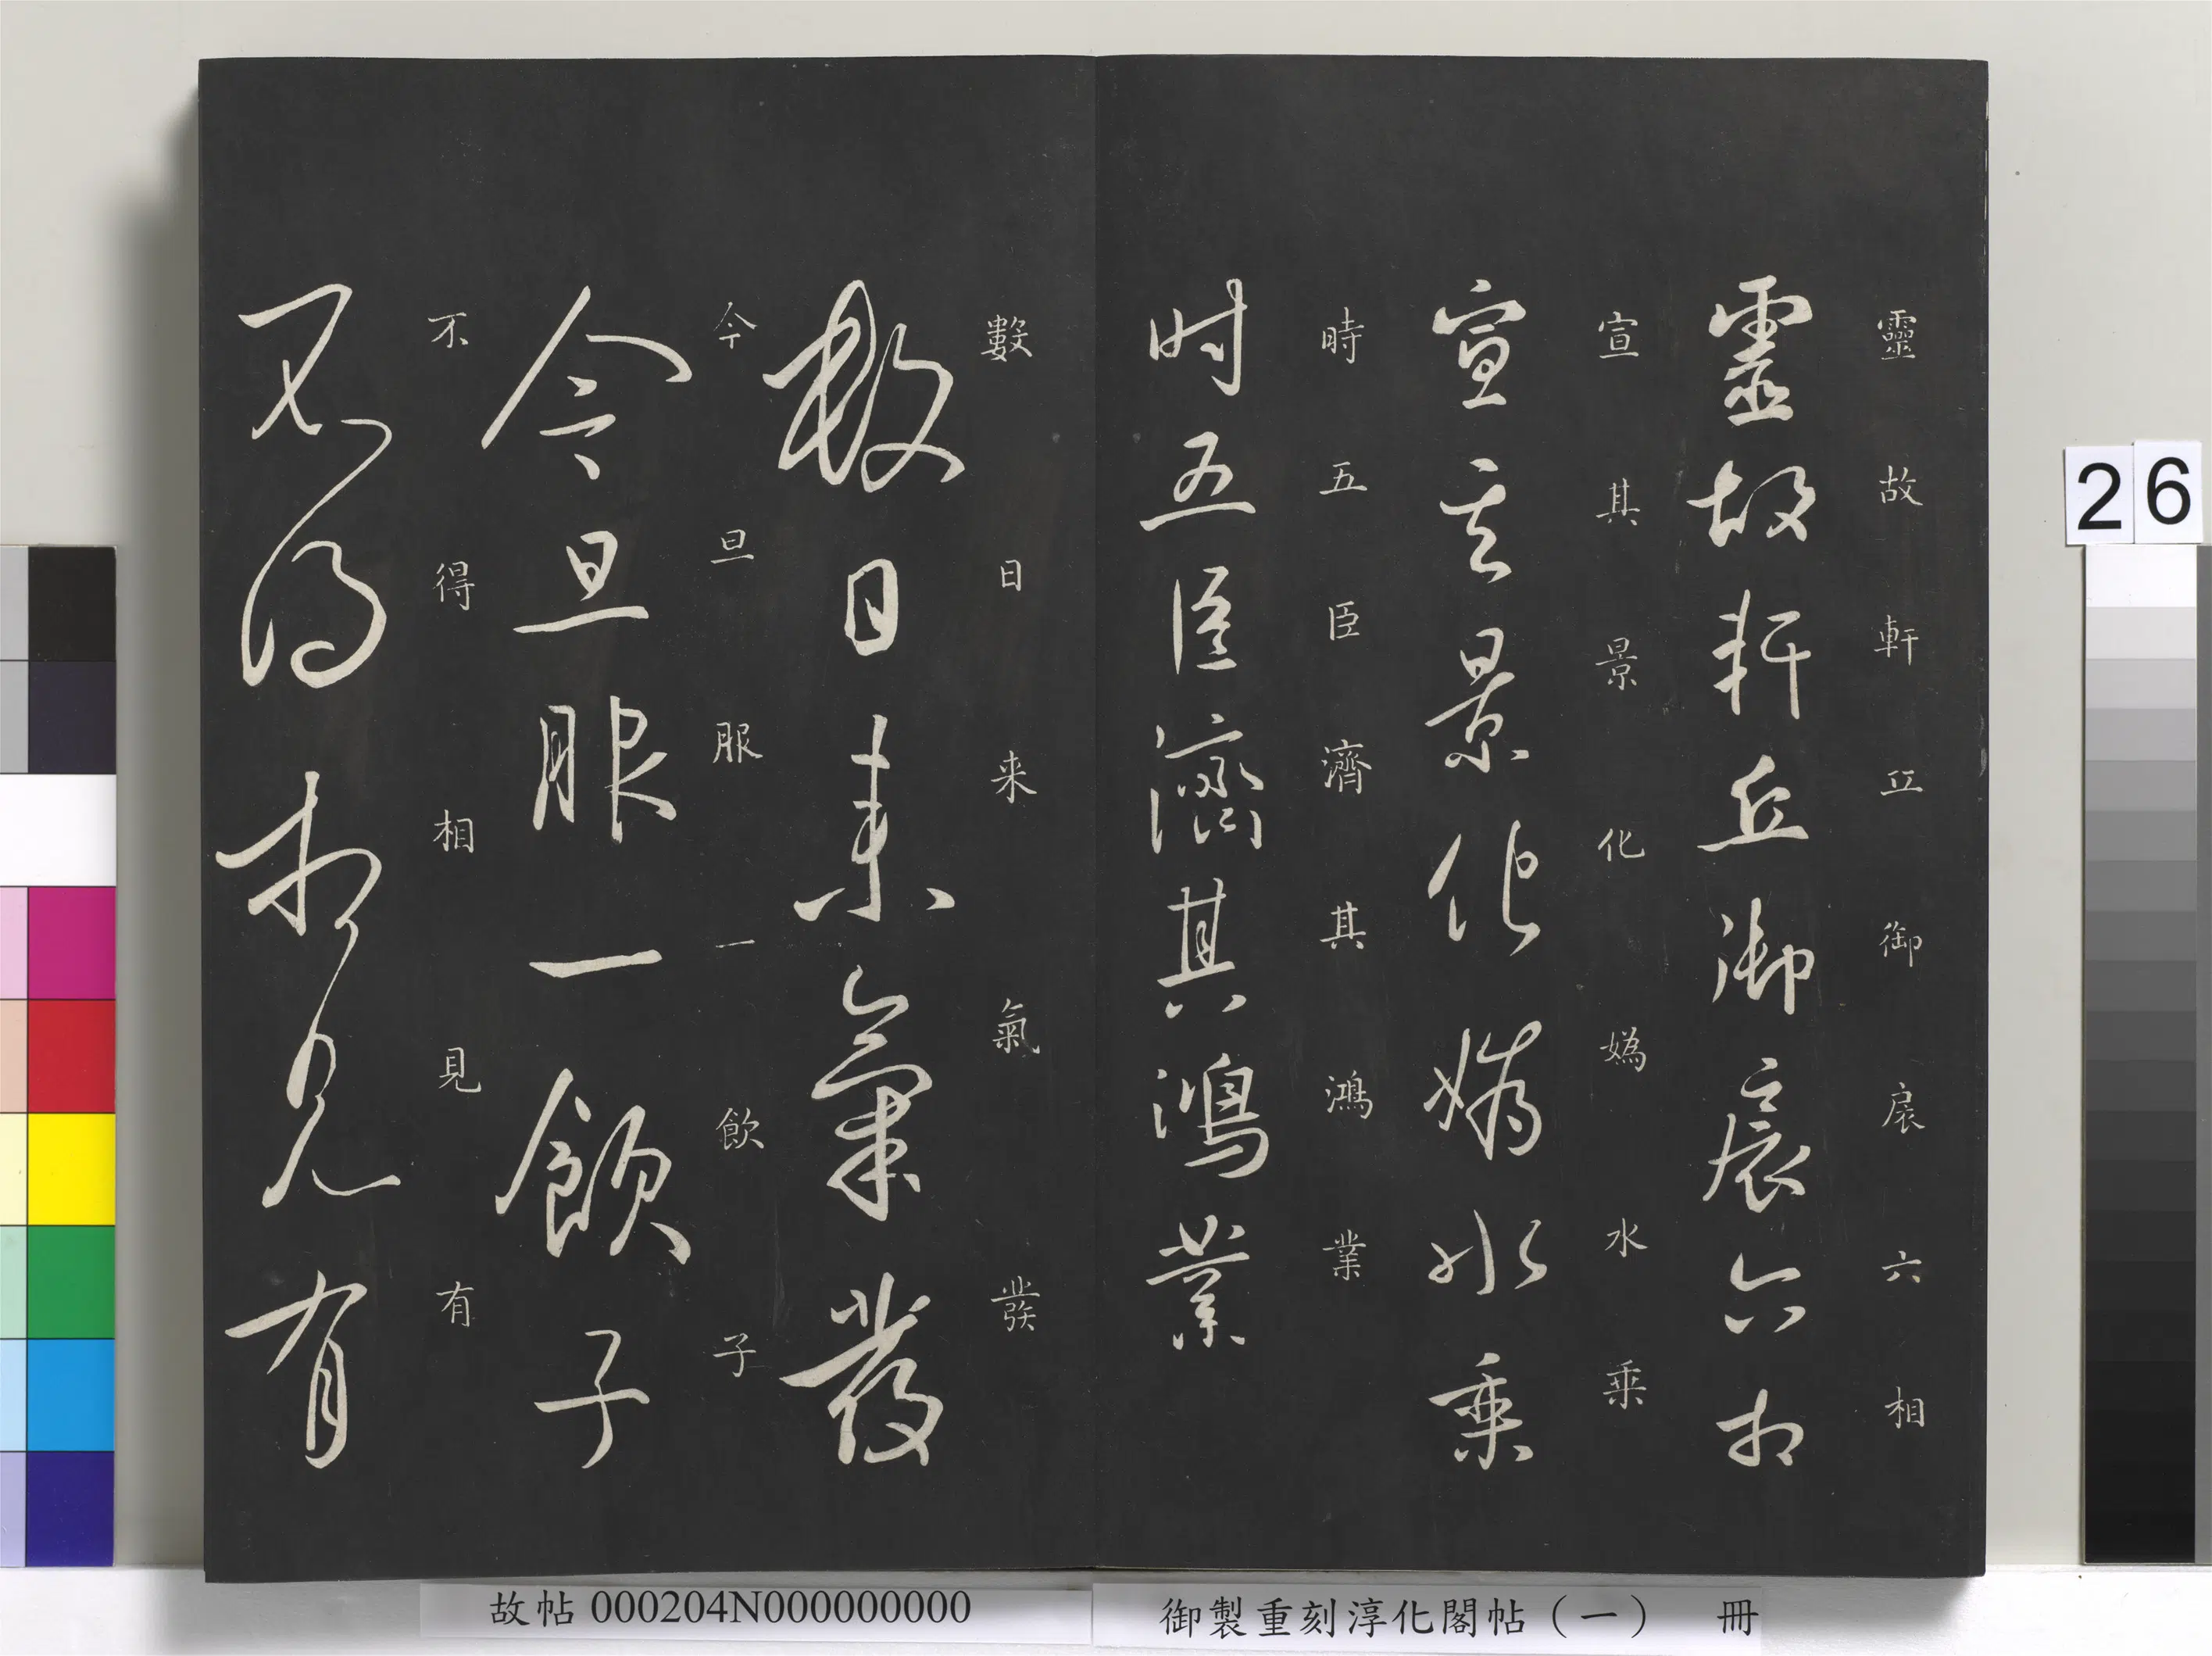 靈故軒丘御扆六相
靈故軒丘御扆六相
宣其景化媯水乘
宣其景化媯水乘
時五臣濟其鴻業
時五臣濟其鴻業
數日来氣發
數日来氣發
今旦服一飲子
今旦服一飲子
不得相見有
不得相見有
26
故帖 000204N000000000
御製重刻淳化閣帖（一） 冊